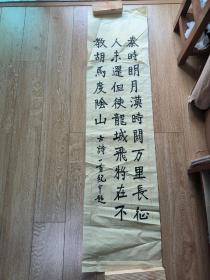 秦時明月漢時關万里長征
人未還但使龍城飛將在不
教胡馬度陰山 古詩一首